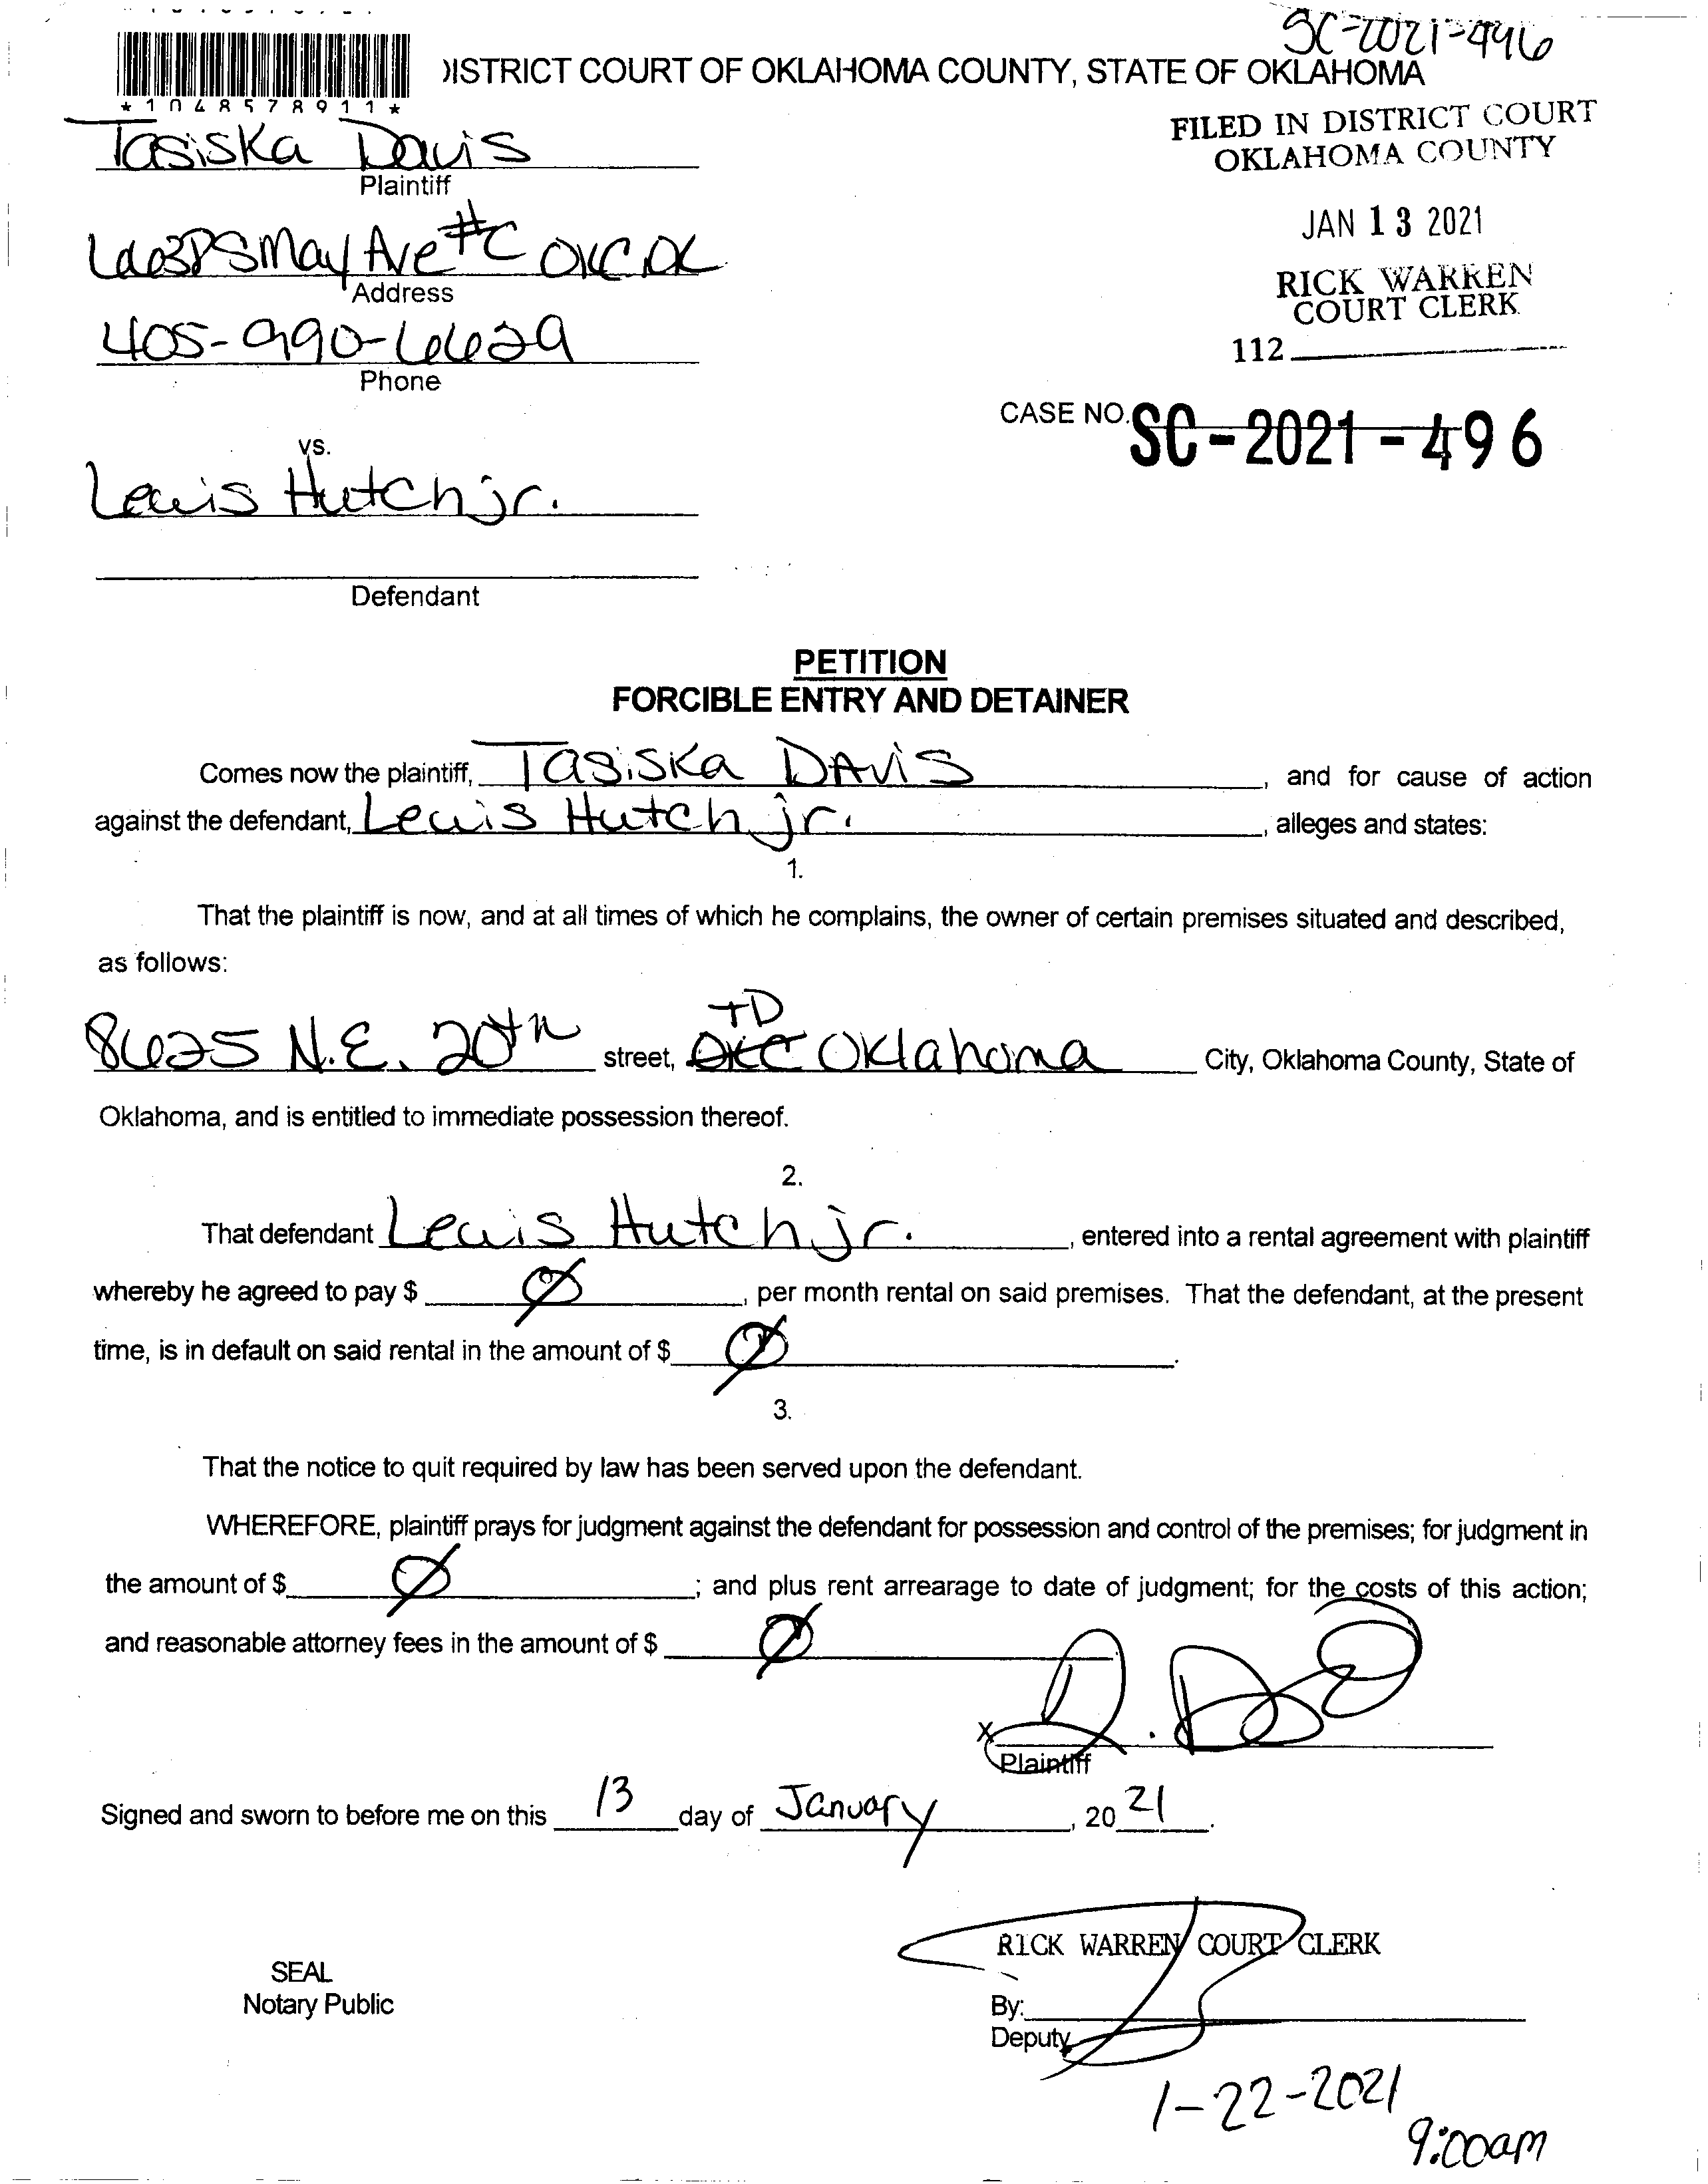 SC-2021-496
DISTRICT COURT OF OKLAHOMA COUNTY, STATE OF OKLAHOMA
*1048578911*
FILED IN DISTRICT COURT
OKLAHOMA COUNTY
Tasiska Davis
Plaintiff
JAN 13 2021
6638 S May Ave #C OKC OK
Address
RICK WARREN
COURT CLERK
405-990-6629
Phone
112
CASE NO. SC-2021-496
vs.
Lewis Hutch jr.
Defendant
PETITION
FORCIBLE ENTRY AND DETAINER
Comes now the plaintiff, Tasiska DAvis, and for cause of action
against the defendant, Lewis Hutch jr., alleges and states:
1.
That the plaintiff is now, and at all times of which he complains, the owner of certain premises situated and described,
as follows:
TD
8625 N.E. 20th street, OKC Oklahoma City, Oklahoma County, State of
Oklahoma, and is entitled to immediate possession thereof.
2.
That defendant Lewis Hutch jr., entered into a rental agreement with plaintiff
whereby he agreed to pay $ Ø, per month rental on said premises. That the defendant, at the present
time, is in default on said rental in the amount of $ Ø.
3.
That the notice to quit required by law has been served upon the defendant.
WHEREFORE, plaintiff prays for judgment against the defendant for possession and control of the premises; for judgment in
the amount of $ Ø; and plus rent arrearage to date of judgment; for the costs of this action;
and reasonable attorney fees in the amount of $ Ø
X
Plaintiff
Signed and sworn to before me on this 13 day of January, 2021.
RICK WARREN COURT CLERK
SEAL
Notary Public
By:
Deputy
1-22-2021
9:00am